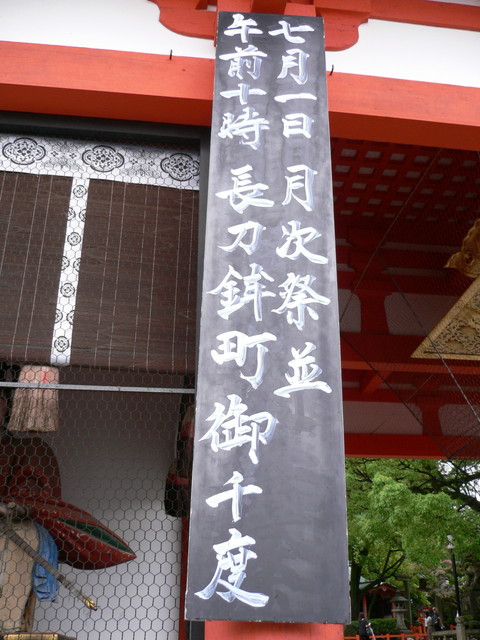 七月一日 月次祭並
午前十時 長刀鉾町御千度